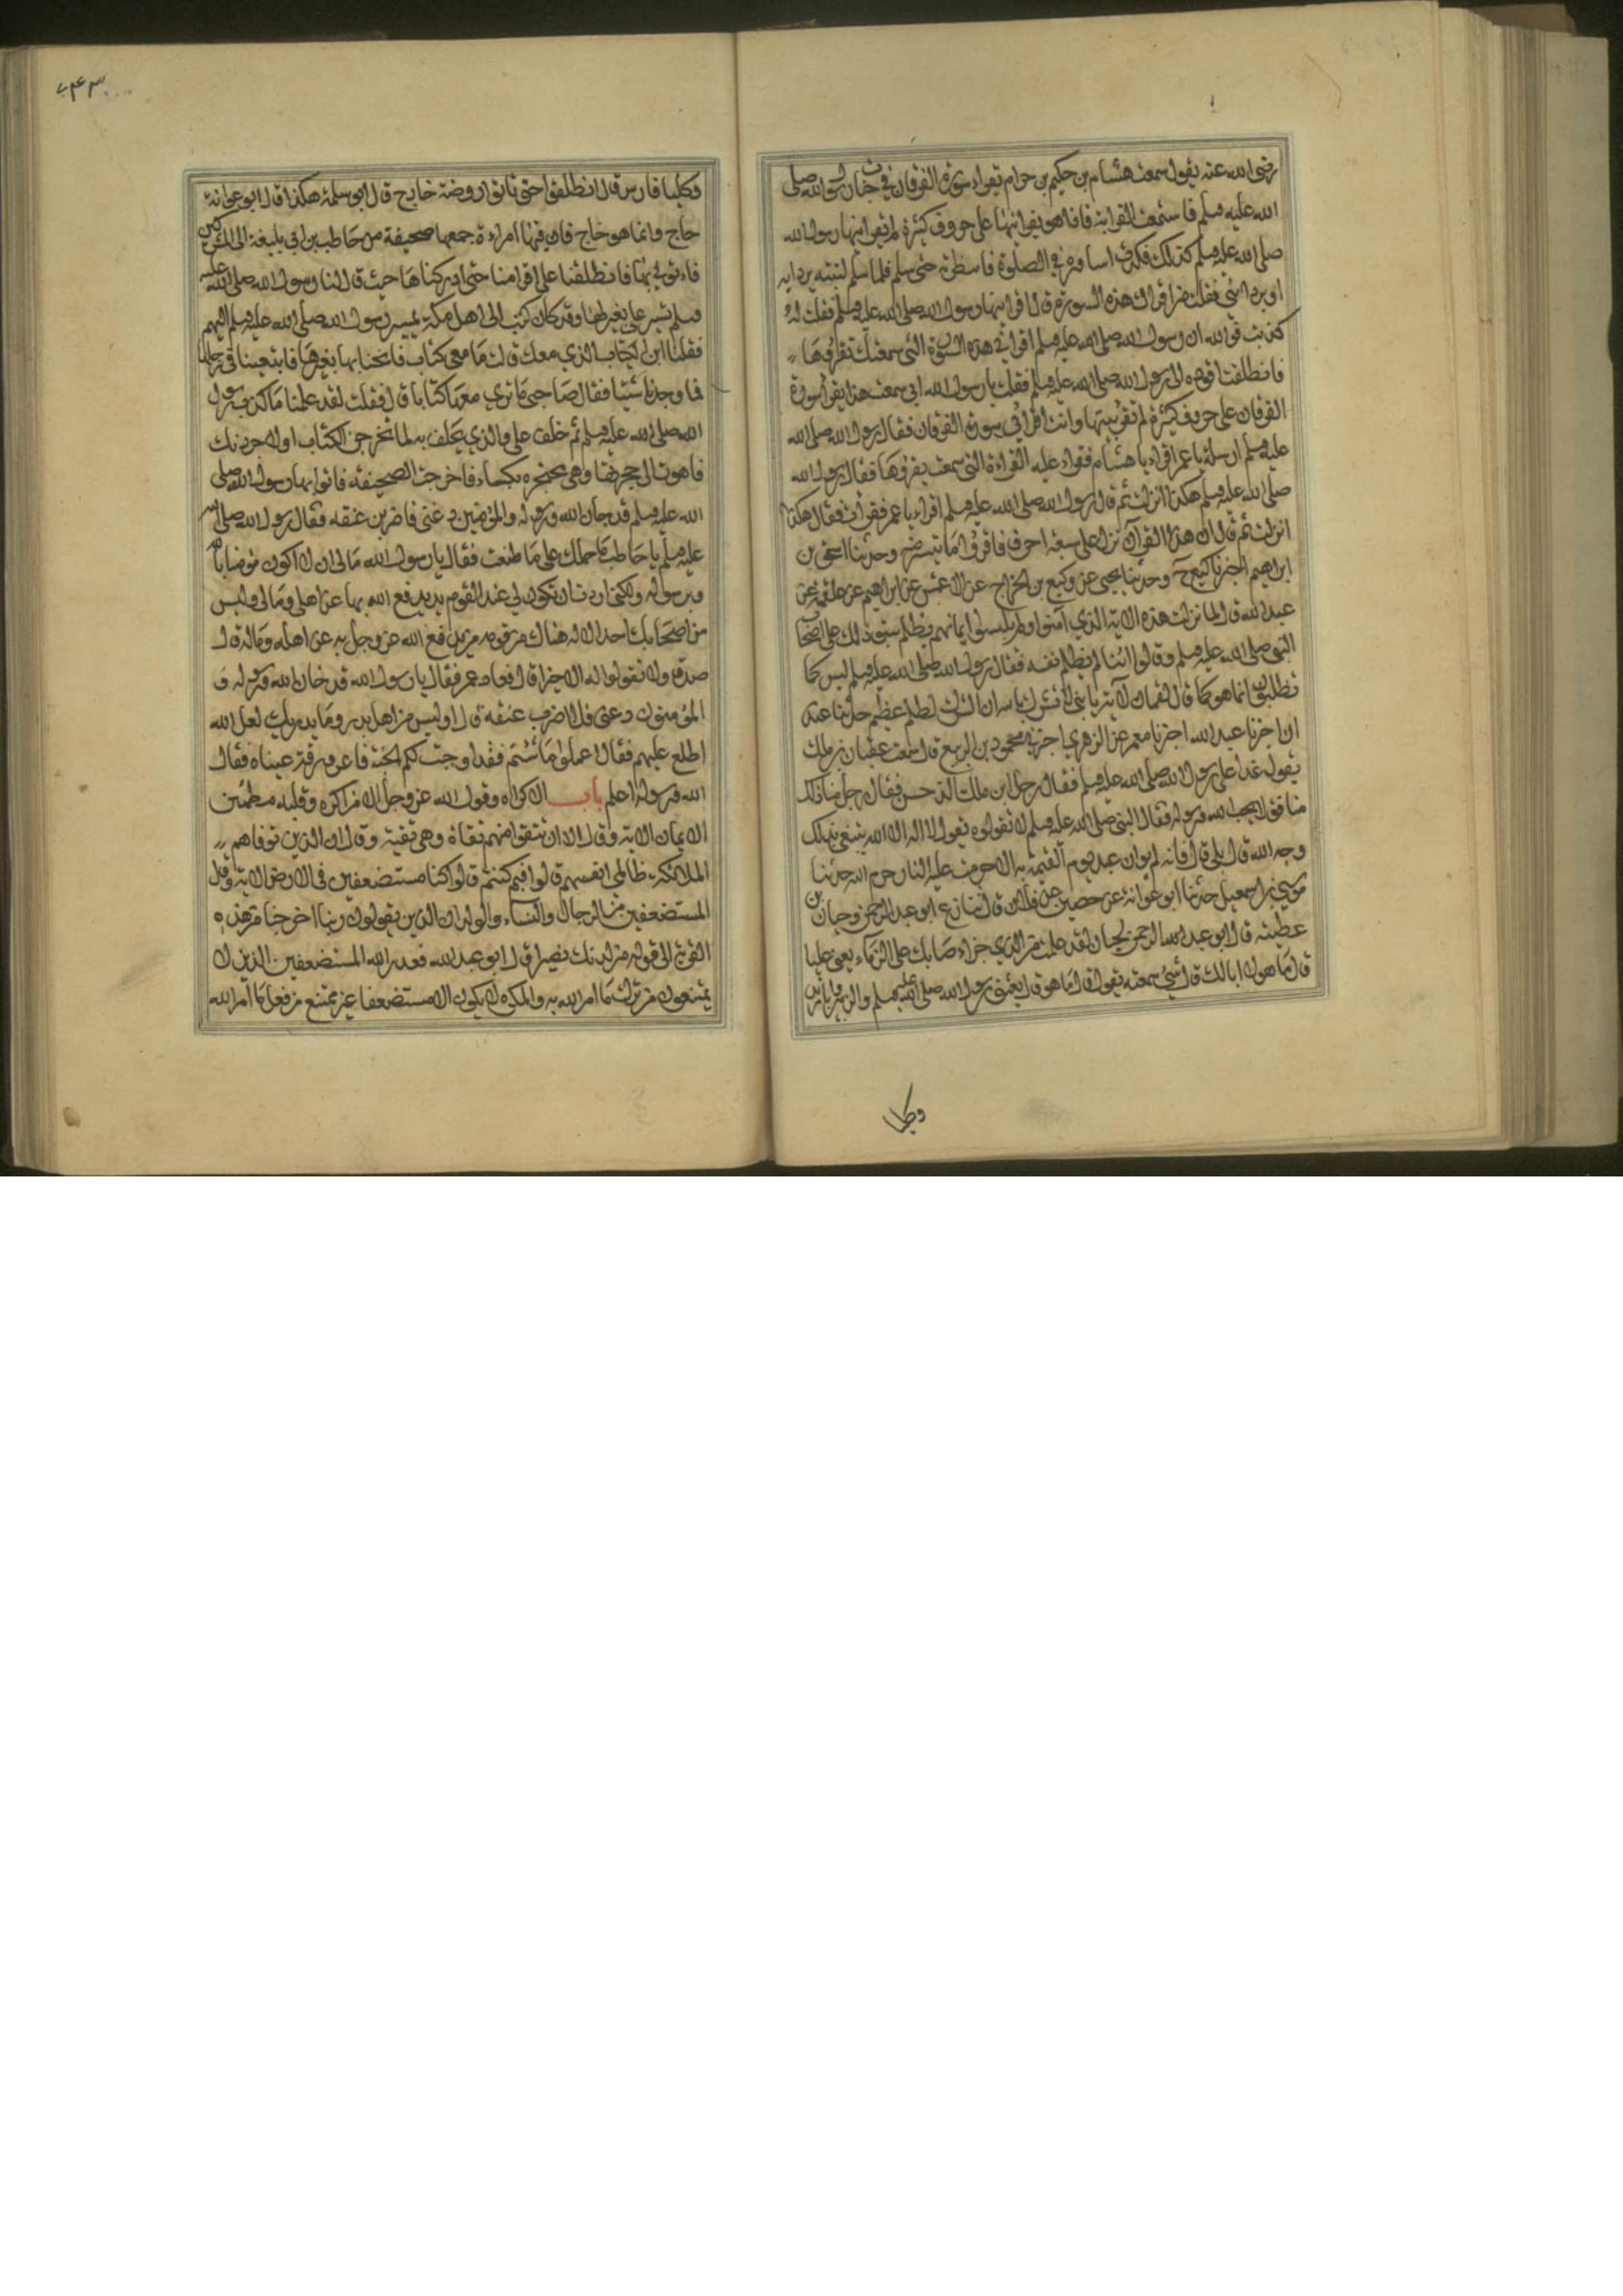 رضى الله عنه يقول سمعت هشام بن حكيم بن حزام يقراء سورة الفرقان في حياة رسول الله صلى
الله عليه وسلم فاستمعت لقراءته فاذا هو يقرائها على حروف كثيرة لم يقرائنيها رسول الله
صلى الله عليه وسلم كذلك فكدت اساوره في الصلوة فانتظرته حتى سلم فلما سلم لببته بردايه
او بردائي فقلت من اقراك هذه السورة قال اقرانيها رسول الله صلى الله عليه وسلم فقلت له
كذبت فوالله ان رسول الله صلى الله عليه وسلم اقراني هذه السورة التي سمعتك تقرؤها
فانطلقت اقوده الى رسول الله صلى الله عليه وسلم فقلت يا رسول الله اني سمعت هذا يقرأ سورة
الفرقان على حروف كثيرة لم تقرئنيها وانت اقرأتني سورة الفرقان فقال رسول الله صلى الله
عليه وسلم ارسله يا عمر اقراء يا هشام فقراء عليه القراءة التي سمعت يقرؤها فقال رسول الله
صلى الله عليه وسلم هكذا انزلت ثم قال رسول الله صلى الله عليه وسلم اقراء يا عمر فقرأت فقال هكذا
انزلت ثم قال ان هذا القرآن نزل على سبعة احرف فاقرؤا ما تيسر منه وحدثنا اسحق بن
ابراهيم اخبرنا وكيع ح وحدثنا يحيى عن وكيع بن الجراح عن الاعمش عن ابراهيم عن علقمة عن
عبد الله قال لما نزلت هذه الاية الذين آمنوا ولم يلبسوا ايمانهم بظلم شق ذلك على اصحاب
النبي صلى الله عليه وسلم وقالوا اينا لم يظلم نفسه فقال رسول الله صلى الله عليه وسلم ليس كما
تظنون انما هو كما قال لقمان لابنه يا بني لا تشرك بالله ان الشرك لظلم عظيم حدثنا عبد
ان اخبرنا عبد الله اخبرنا معمر عن الزهري اخبرني محمود بن الربيع قال سمعت عتبان بن ملك
يقول غدا على رسول الله صلى الله عليه وسلم فقال رجل اين ملك بن الدخشن فقال رجل منا ذلك
منافق لا يحب الله ورسوله فقال النبي صلى الله عليه وسلم لا تقولوه يقول لا اله الا الله يبتغي بذلك
وجه الله قال بلى قال فانه لا يوافي عبد يوم القيمة به الا حرمت عليه النار حرم الله حدثنا
موسى بن اسمعيل حدثنا ابو عوانة عن حصين عن فلان قال تنازع ابو عبد الرحمن وحبان بن
عطية فقال ابو عبد الرحمن لحبان لقد علمت من الذي جراء صاحبك على الدماء يعني عليا
قال ما هو لا ابا لك قال شئ سمعته يقوله قال ما هو قال بعثني رسول الله صلى الله عليه وسلم والزبير وابا مرثد
وكلنا
وكلنا فارس قال انطلقوا حتى تاتوا روضة خاخ قال ابو سلمة هكذا قال ابو عوانة
حاج وانما هو خاخ فان فيها امراءة جمعها صحيفة من حاطب بن ابي بلتعة الى المشركين
فاءتوني بها فانطلقنا على افراسنا حتى ادركناها حيث قال لنا رسول الله صلى الله عليه
وسلم تسير على بعير لها وقد كان كتب الى اهل مكة بمسير رسول الله صلى الله عليه وسلم اليهم
فقلنا اين الكتاب الذي معك قالت ما معي كتاب فانخنا بها بعيرها فابتغينا في رحلها
فما وجدنا شيئا فقال صاحبي ما نرى معها كتابا قال فقلت لقد علمنا ما كذب رسول
الله صلى الله عليه وسلم ثم حلف علي والذي يحلف به لتخرجن الكتاب او لاجردنك
فاهوت الى حجزتها وهي محتجزة بكساء فاخرجت الصحيفة فاتوا بها رسول الله صلى
الله عليه وسلم قد خان الله ورسوله والمؤمنين دعني فاضرب عنقه فقال رسول الله صلى الله
عليه وسلم يا حاطب ما حملك على ما صنعت فقال يا رسول الله ما لي ان لا اكون مؤمنا بالله
وبرسوله ولكني اردت ان تكون لي عند القوم يد يدفع الله بها عن اهلي ومالي وليس
من اصحابك احد الا له هنالك من قومه من يدفع الله عز وجل به عن اهله وماله قال
صدق ولا تقولوا له الا خيرا قال فعاد عمر فقال يا رسول الله قد خان الله ورسوله و
المؤمنون دعني فلاضرب عنقه قال اوليس من اهل بدر وما يدريك لعل الله
اطلع عليهم فقال اعملوا ما شئتم فقد اوجبت لكم الجنة فاغرورقت عيناه فقال
الله ورسوله اعلم باب الاكراه وقول الله عز وجل الا من اكره وقلبه مطمئن
الايمان الاية وقال الا ان تتقوا منهم تقاة وهي تقية وقال ان الذين توفاهم
الملائكة ظالمي انفسهم قالوا فيم كنتم قالوا كنا مستضعفين في الارض الاية وقال
المستضعفين من الرجال والنساء والولدان الذين يقولون ربنا اخرجنا من هذه
القرية الى قوله من لدنك نصيرا قال ابو عبد الله فعذر الله المستضعفين الذين لا
يمتنعون من ترك ما امر الله به والمكره لا يكون الا مستضعفا غير ممتنع من فعل ما امر الله